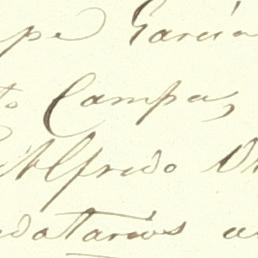 pe García
to Campa,
Alfredo
datarios a